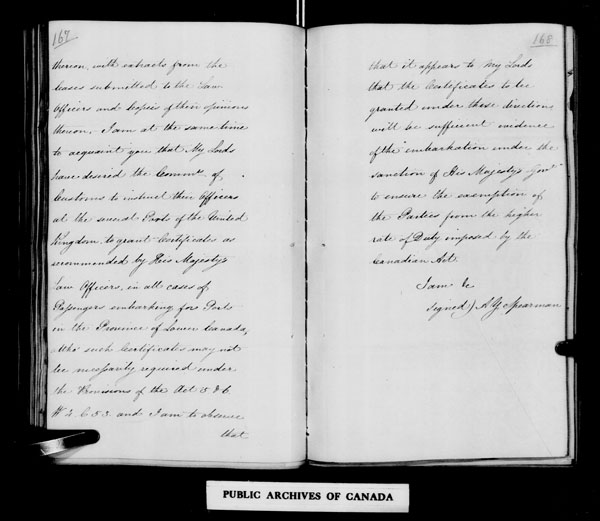 167
thereon, with extracts from the
Cases submitted to the Law
Officers and Copies of their opinions
thereon. I am at the same time
to acquaint you that My Lords
have desired the Commrs. of
Customs to instruct their Officers
at the several Ports of the United
Kingdom to grant Certificates as
recommended by His Majesty's
Law Officers, in all cases of
Passengers embarking for Ports
in the Province of Lower Canada,
altho' such Certificates may not
be necessarily required under
the Provisions of the Act 5 & 6
W. 4. C 53. and I am to observe
that
168
that it appears to My Lords
that the Certificates to be
granted under these directions
will be sufficient evidence
of the embarkation under the
sanction of His Majesty's Govt.
to ensure the exemption of
the Parties from the higher
rate of Duty imposed by the
Canadian Act.
I am &c
signed) A Y Spearman
PUBLIC ARCHIVES OF CANADA